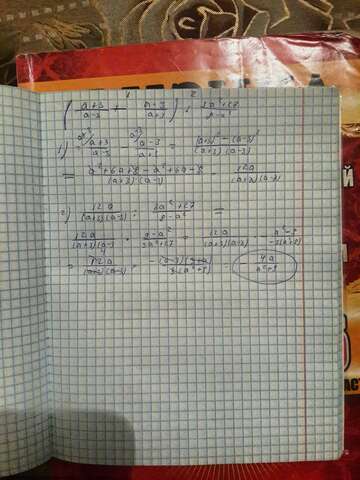 1 2
( a+3/a-3 - a-3/a+3 ) : 3a²+27/9-a²
1) a+3/a-3 - a-3/a+3 = (a+3)² - (a-3)²/(a+3)(a-3)
= a²+6a+9-a²+6a-9/(a+3)(a-3) = 12a/(a+3)(a-3)
2) 12a/(a+3)(a-3) : 3a²+27/9-a² =
12a/(a+3)(a-3) · 9-a²/3a²+27 = 12a/(a+3)(a-3) · a²-9/-3(a²+9)
= 12a/(a+3)(a-3) · -(a-3)(3+a)/3(a²+9) = - 4a/a²+9